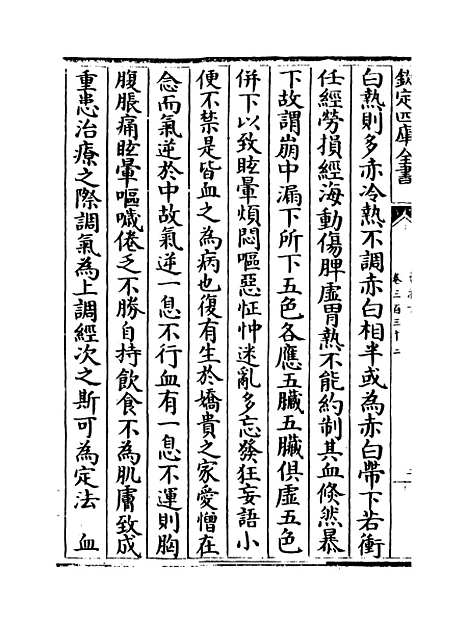 欽定四庫全書
卷三百三十二
白熱則多赤冷熱不調赤白相半或為赤白帶下若衝
任經勞損經海動傷脾虛胃熱不能約制其血倐然暴
下故謂崩中漏下所下五色各應五臟五臟俱虛五色
併下以致眩暈煩悶嘔惡怔忡迷亂多忘發狂妄語小
便不禁是皆血之為病也復有生於嬌貴之家愛憎在
念而氣逆於中故氣逆一息不行血有一息不運則胸
腹脹痛眩暈嘔噦倦乏不勝自持飲食不為肌膚致成
重患治療之際調氣為上調經次之斯可為定法　血